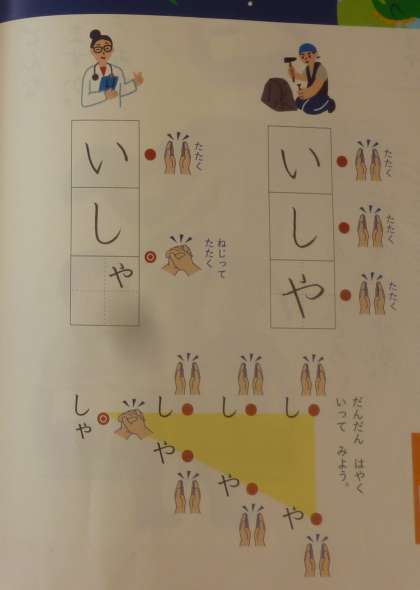 いしや
たたく
たたく
たたく
いしゃ
たたく
ねじって
たたく
だんだん はやく
いって みよう。
し
や
し
や
し
や
しゃ